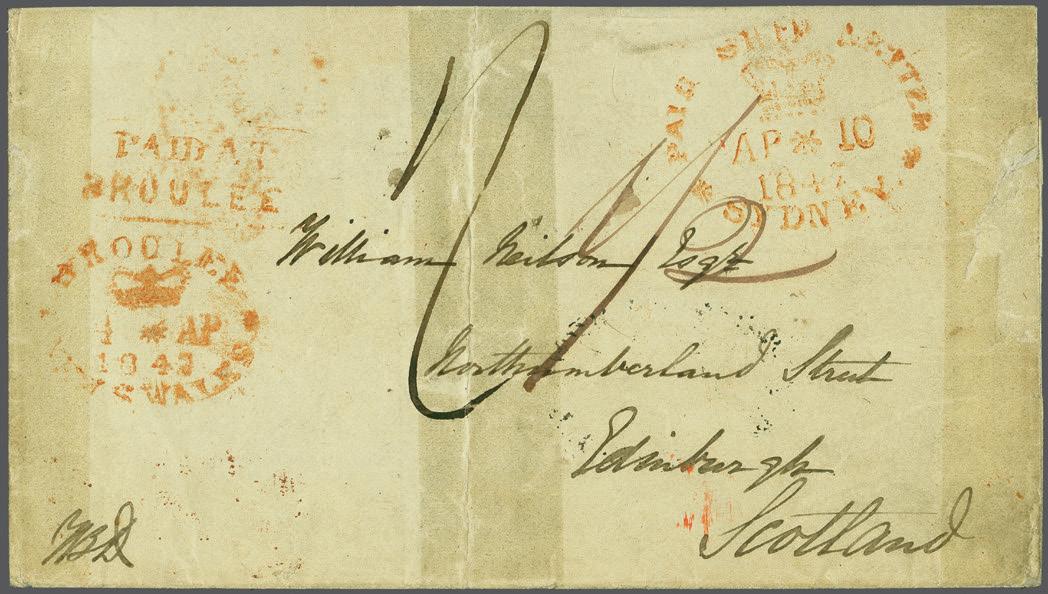 PAID SHIP LETTER
AP * 10
184
SYDNEY
PAID AT
BROULEE
BROULEE
1 * AP
184
S WALES
William Neilson Esqr
Northumberland Street
Edinburgh
Scotland